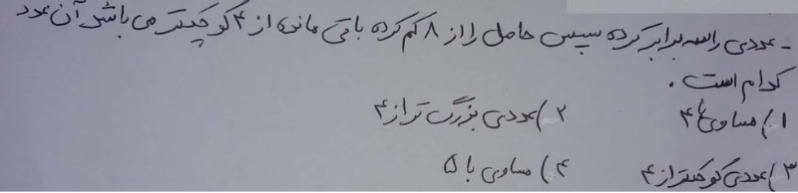 - عددی را سه برابر کرده سپس حاصل را از ۸ کم کرده باقی مانده از ۴ کوچکتر می باشد آن عدد
کدام است .
۱ ) مساوی ۴   ۲ ) عددی بزرگ تر از ۴
۳ ) عددی کوچکتر از ۴   ۴ ) مساوی با ۵